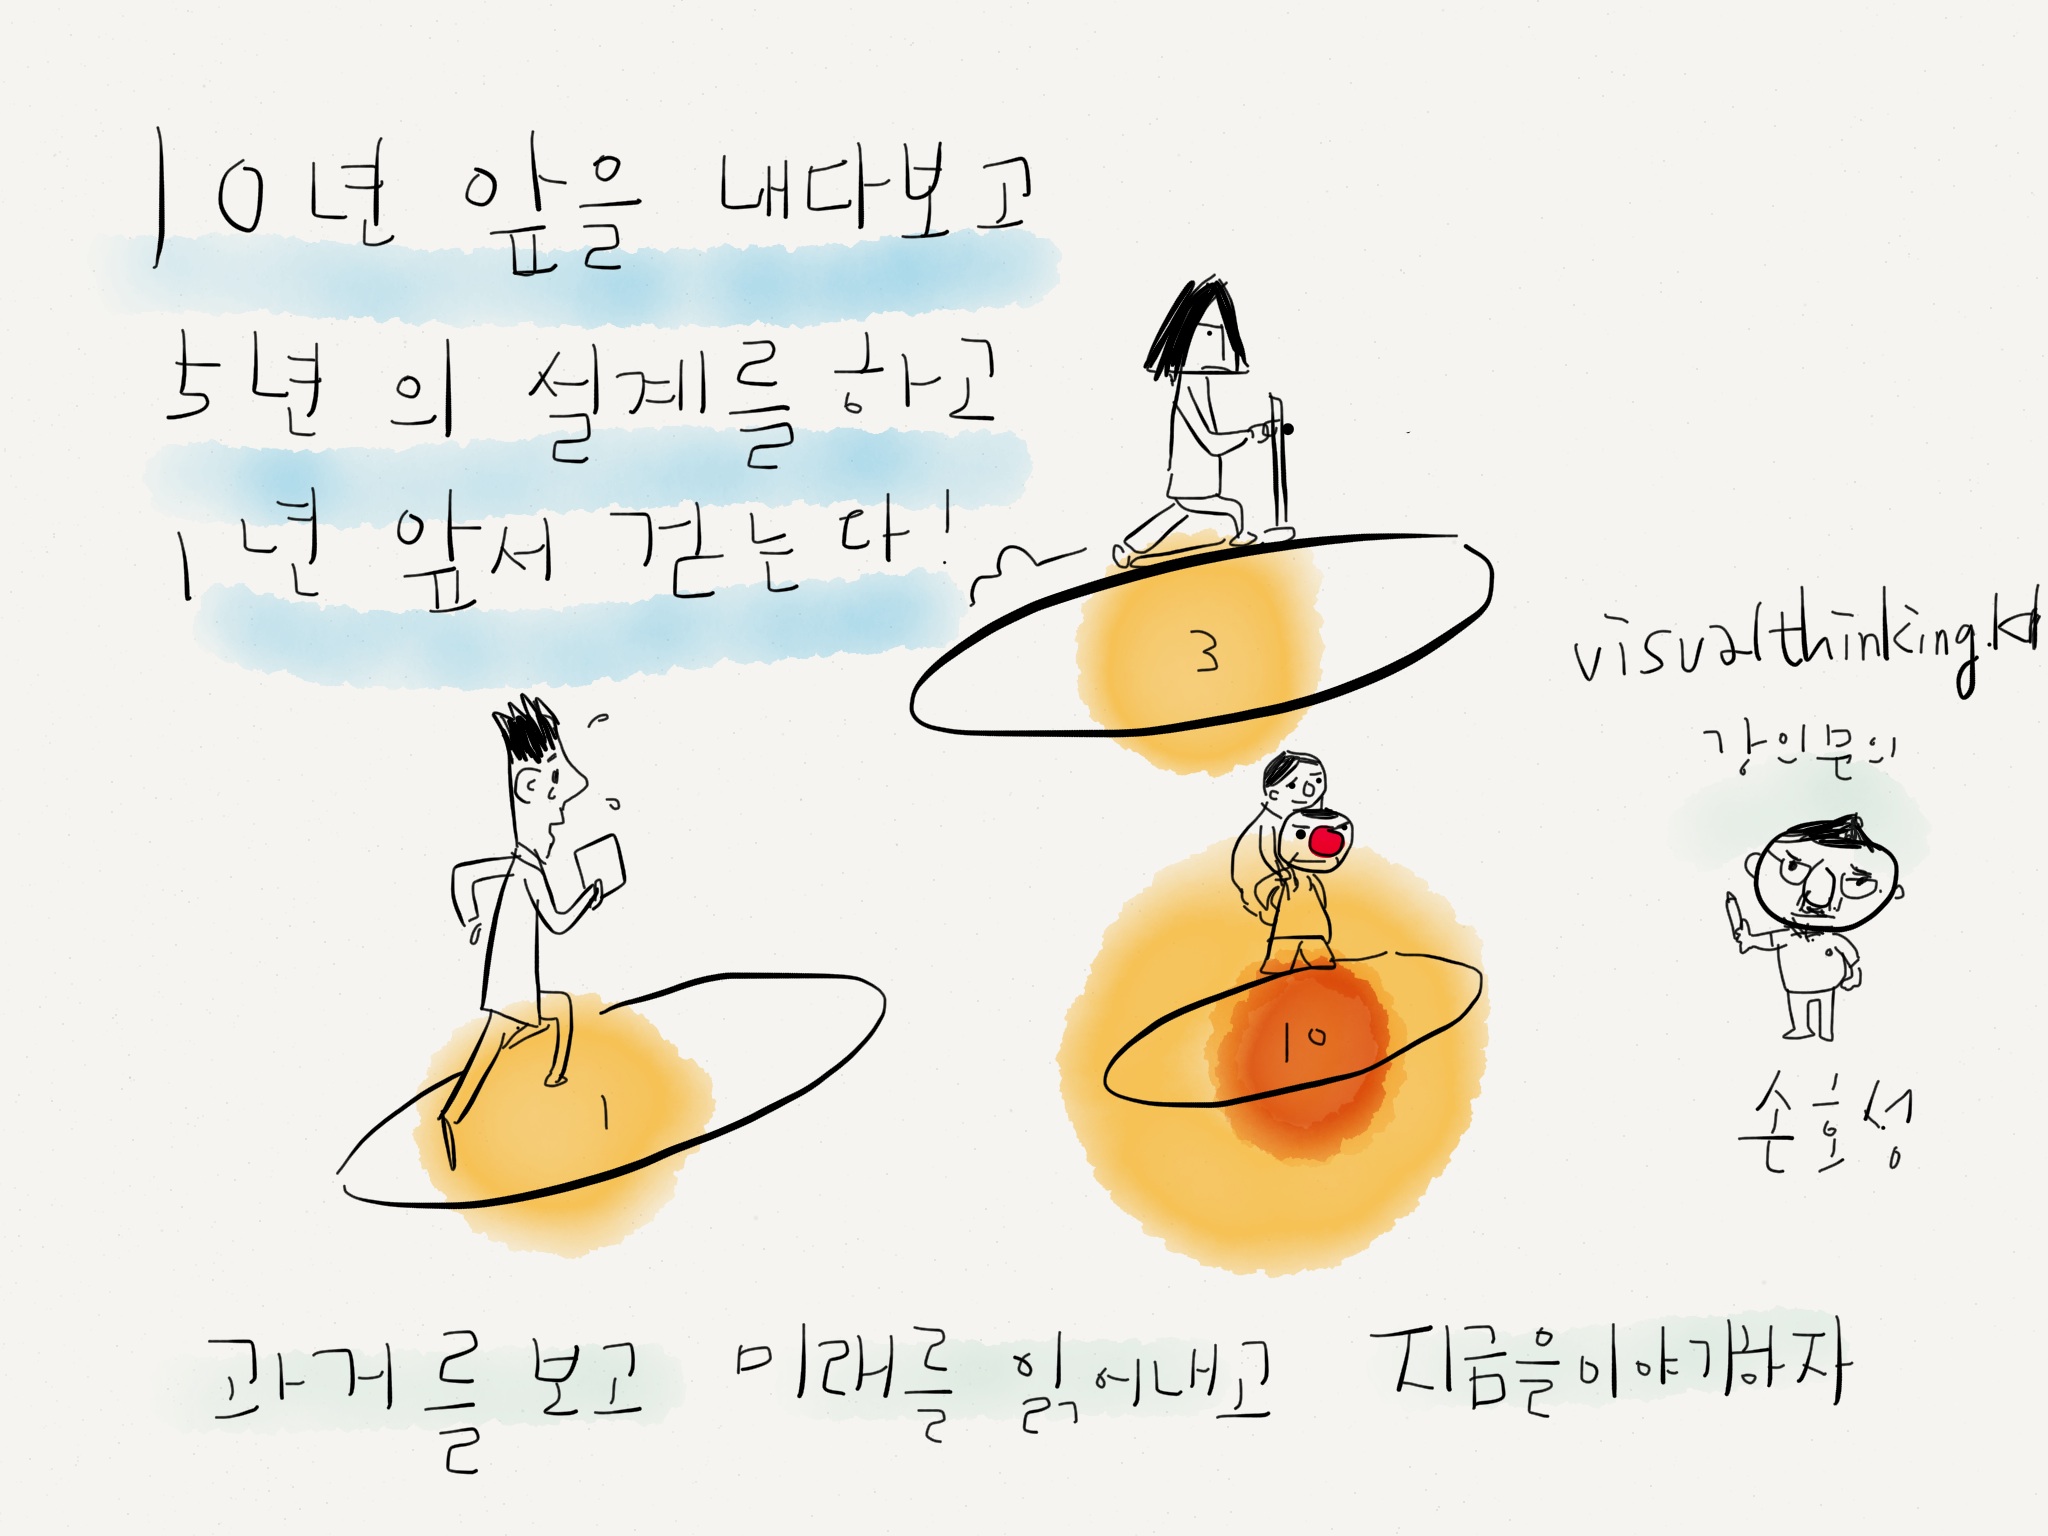 10년 앞을 내다보고
5년의 설계를 하고
1년 앞서 걷는다!
3
visualthinking.kr
강의문의
1
10
손호성
과거를 보고 미래를 읽어내고 지금을이야기하자